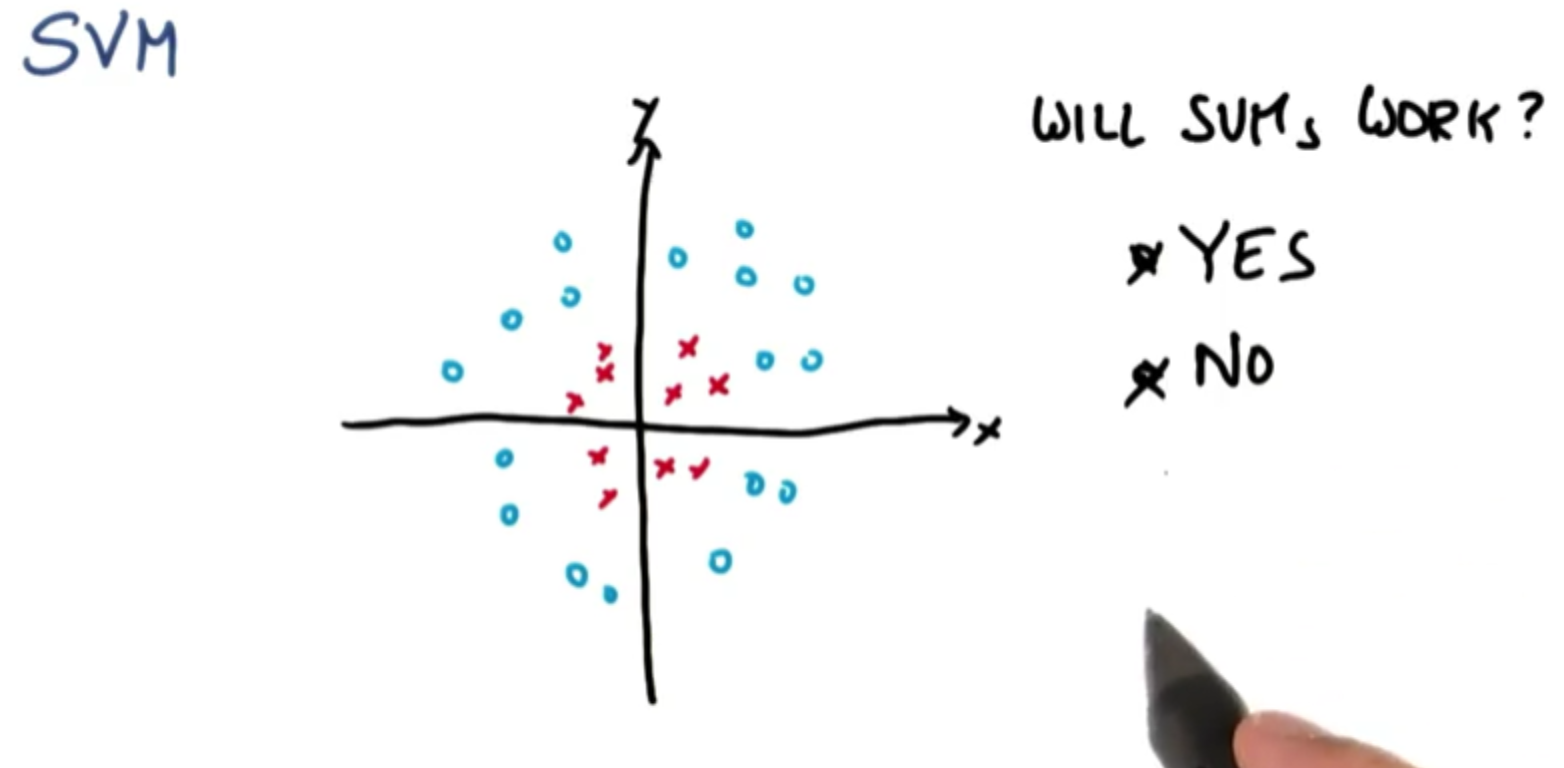 SVM
y
WILL SVMs WORK?
YES
NO
x